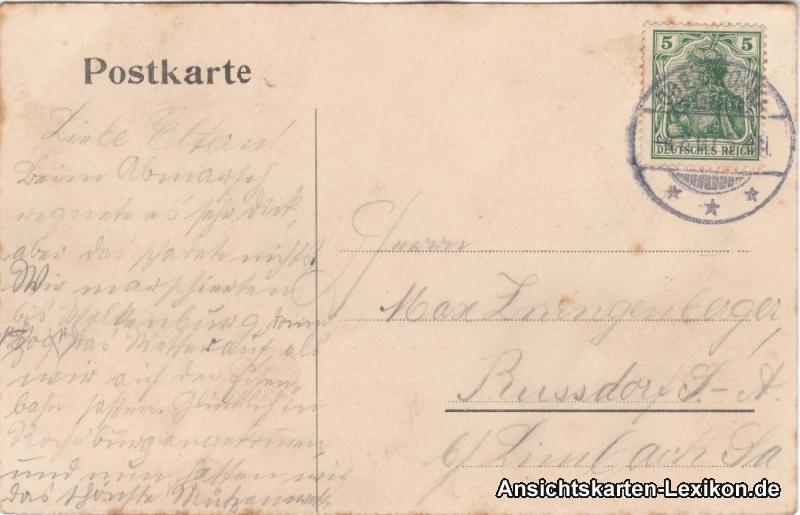 Postkarte
5 5
DEUTSCHES REICH
Liebe Eltern!
Beim Abmarsch
regnete es sehr dick,
aber das schadete nichts.
Wir marschierten
bis Wolkenburg, dann
das Wetter auf, als
wir auf der Eisen-
bahn saßen. Glücklich in
Rochsburg angekommen
und nun hatten wir
das schönste
Herrn
Max Zwingenberger,
Russdorf S.-A.
b/Limbach Sa
Ansichtskarten-Lexikon.de